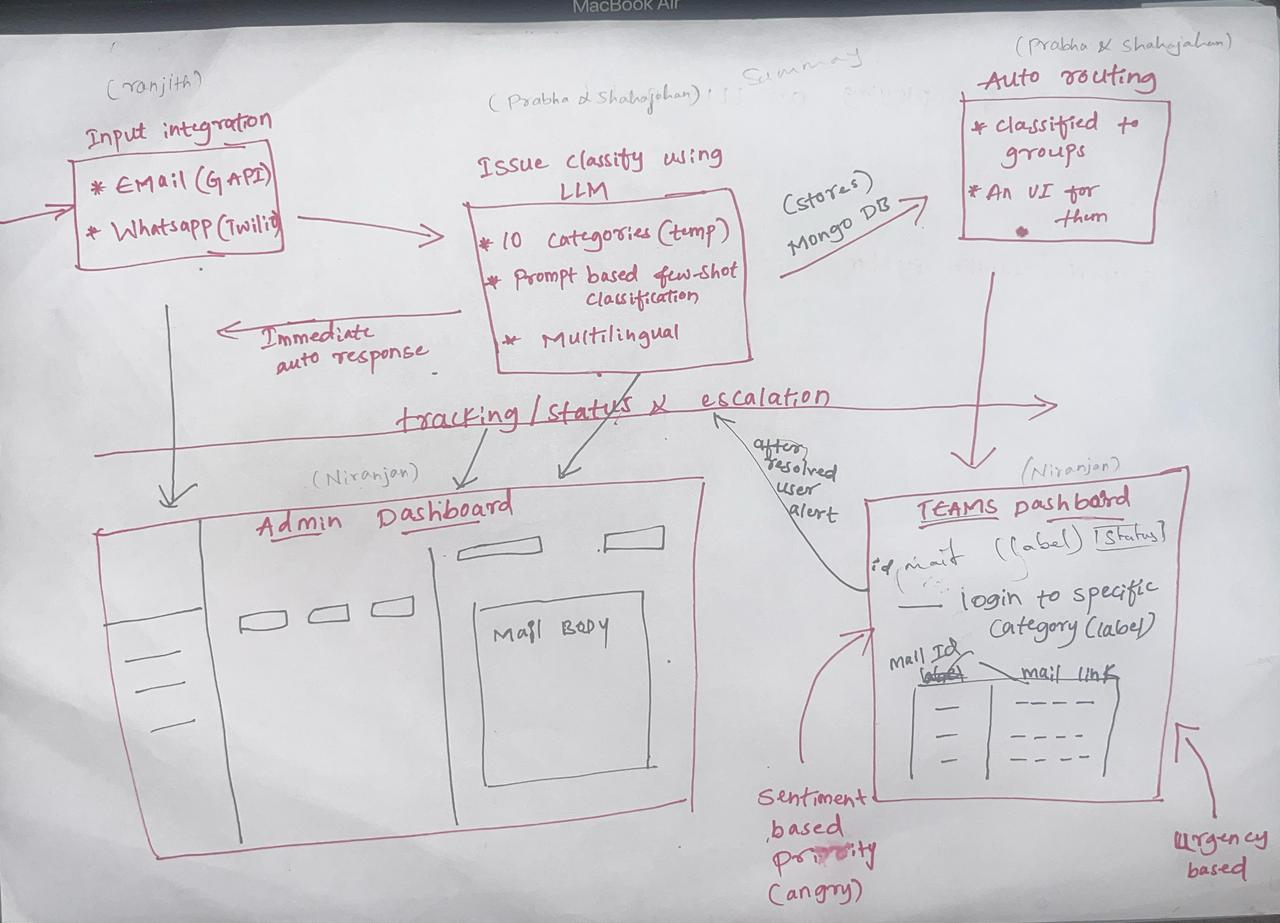 MacBook Air
(ranjith)
Input integration
* EMail (GAPI)
* Whatsapp (Twilio)
Summary
(Prabha & Shahajahan)
Issue classify using
LLM
* 10 categories (temp)
* Prompt based few-shot
classification
* Multilingual
(stores)
Mongo DB
(Prabha & Shahajahan)
Auto routing
* classified to
groups
* An UI for
them
Immediate
auto response
tracking / status & escalation
after
resolved
user
alert
(Niranjan)
Admin Dashboard
Mail BODY
(Niranjan)
TEAMS Dashboard
id, mail (label) [status]
— login to specific
category (label)
Mail Id
label
mail link
Sentiment
based
priority
(angry)
Urgency
based